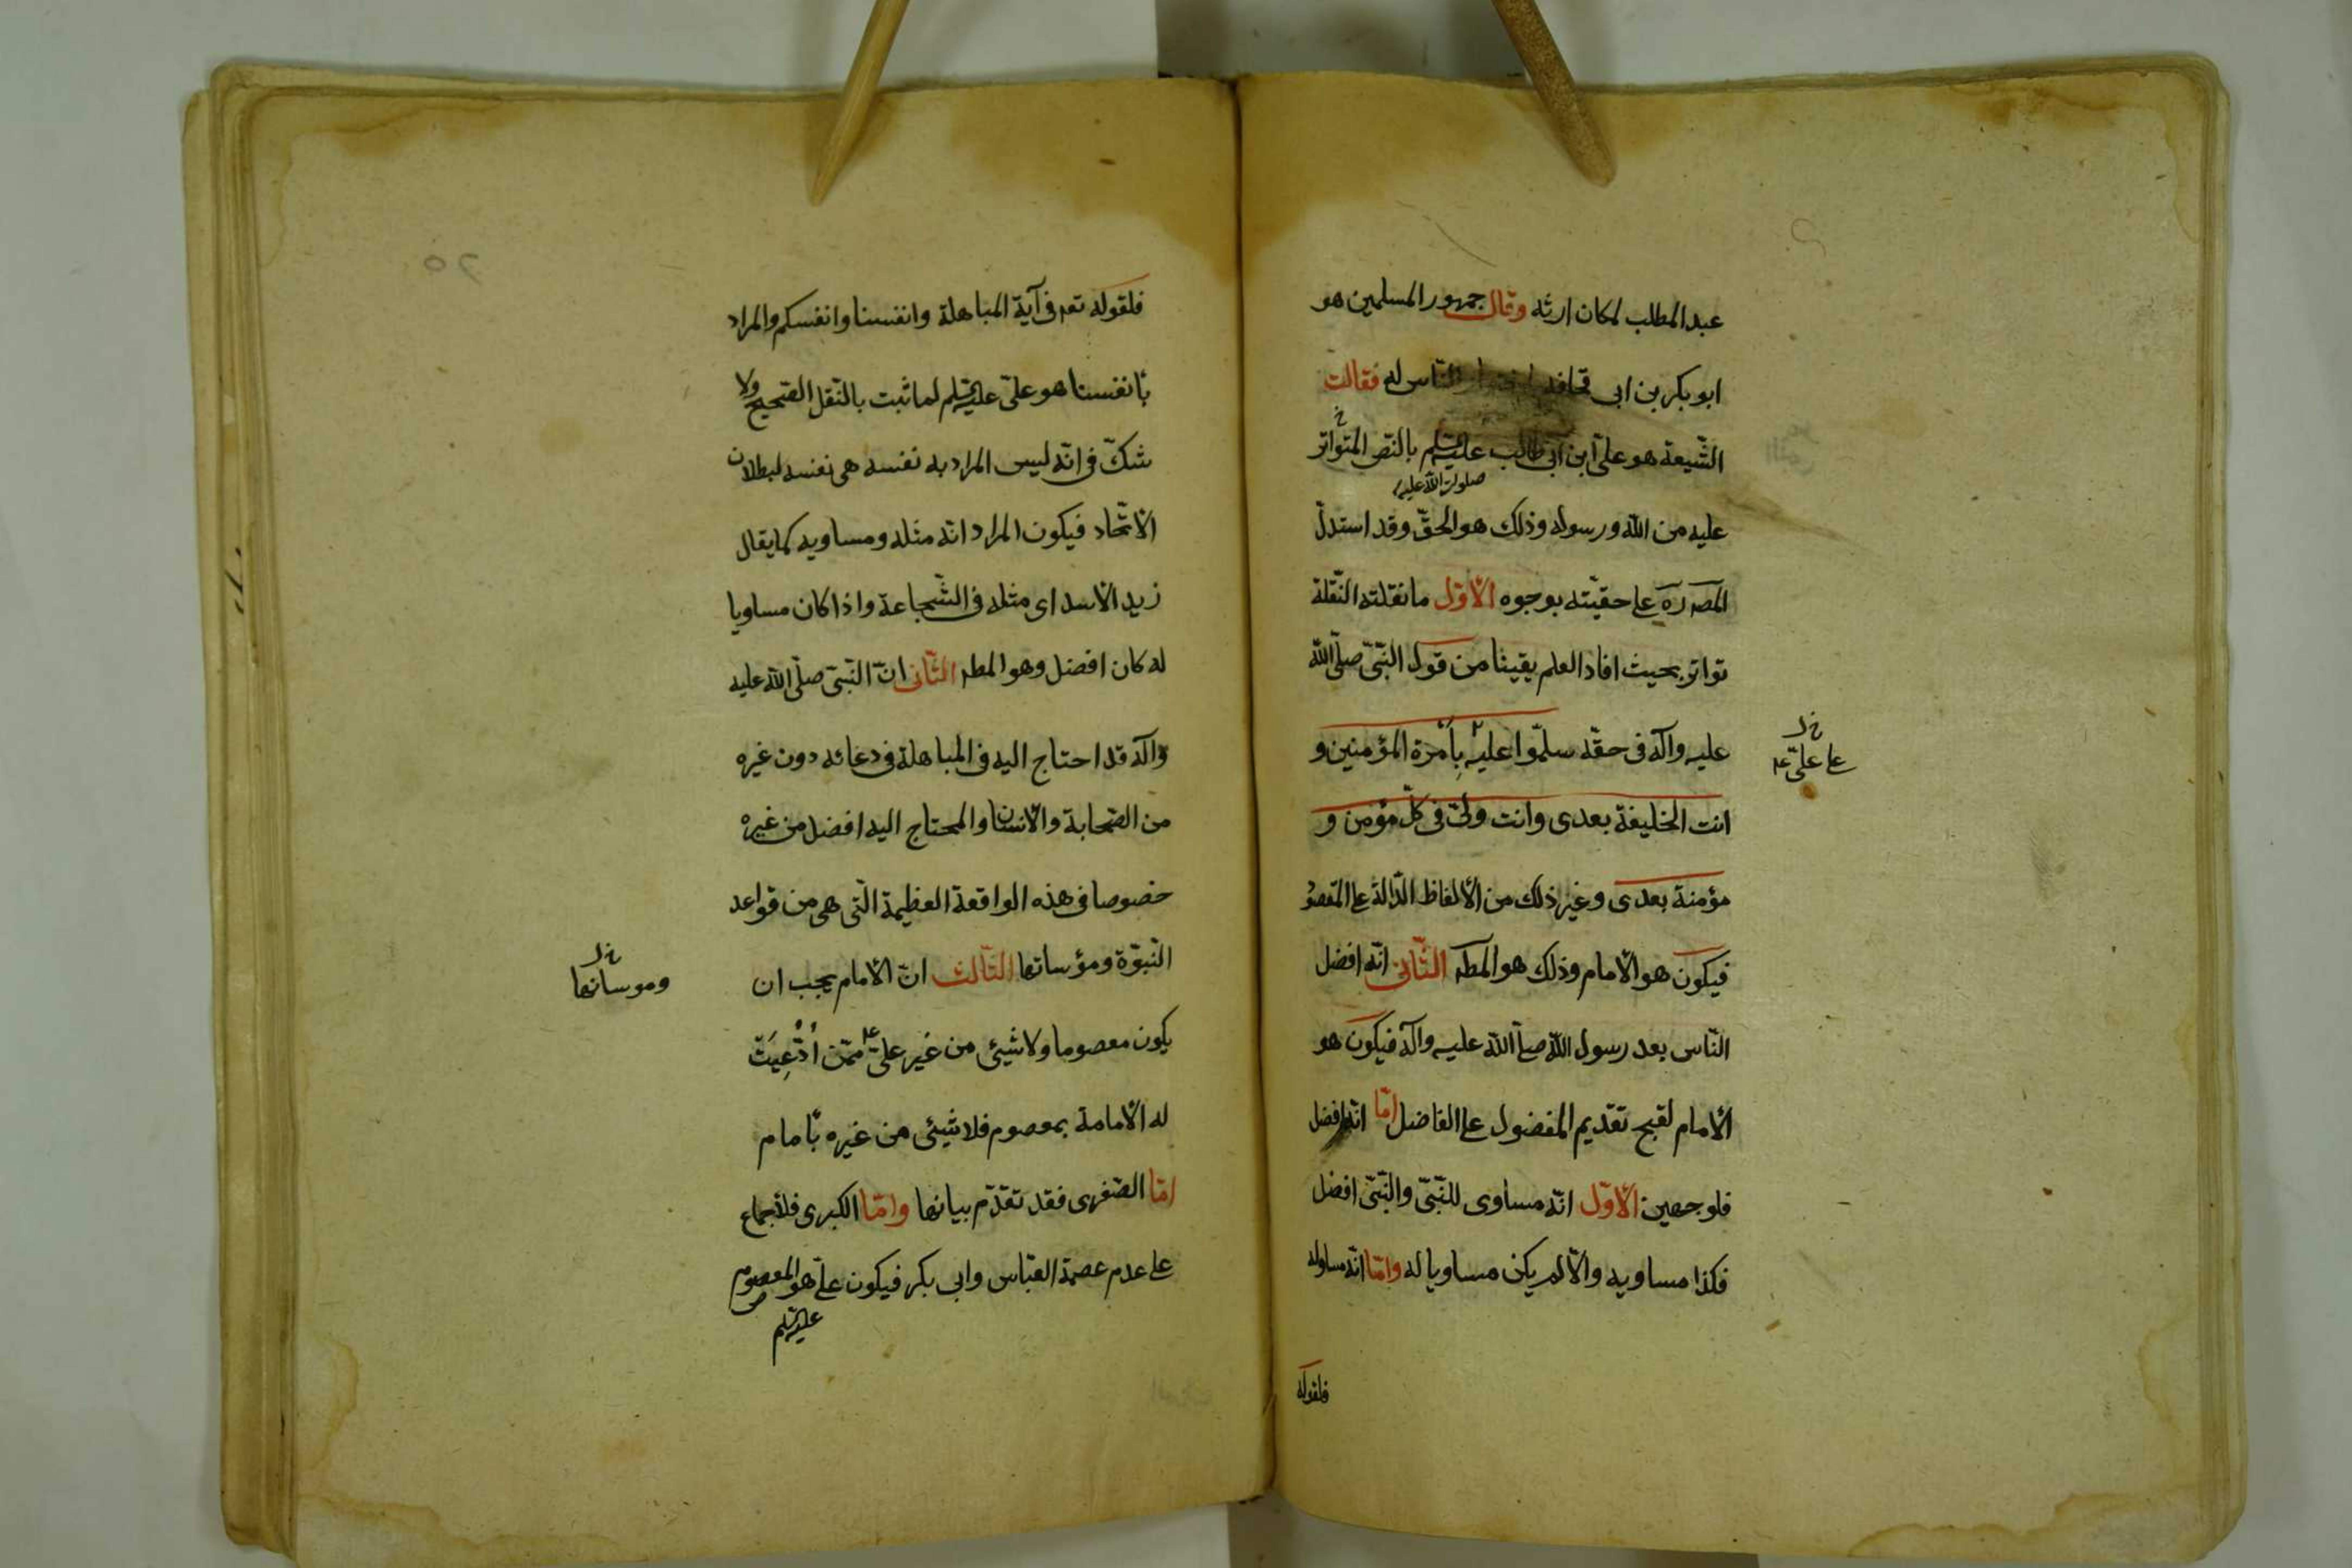 عبد المطلب لمكان ارثه وقال جمهور المسلمين هو
ابو بكر بن ابى قحافه الناس له فقالت
الشّيعة هو علىّ ابن ابى طالب عليه السلم بالنّص المتواتر
صلوات الله عليه
عليه من الله ورسوله وذلك هو الحقّ وقد استدلّ
المصره ره على حقيّته بوجوه الأوّل ما نقلته النّقلة
تواتر بحيث افاد العلم يقينا من قول النّبىّ صلّى الله
عليه وآله فى حقّه سلّموا عليه بِأمْرة المؤمنين و
خ ل
على علىّ ع
انت الخليفة بعدى وانت ولىّ فى كلّ مؤمن و
مؤمنة بعدى وغير ذلك من الألفاظ الدّالة على المقصود
فيكون هو الأمام وذلك هو المطه الثّانى انّه افضل
النّاس بعد رسول الله صلى الله عليه وآله فيكون هو
الأمام لقبح تقديم المفضول على الفاضل امّا انّه افضل
فلوجهين الأوّل انّه مساوى للنّبىّ والنّبىّ افضل
فكذا مساويه والّا لم يكن مساويا له وامّا انّه مساو له
فلقوله
٢٥
فلقوله تعه فى آية المباهلة وانفسنا وانفسكم والمراد
بأنفسنا هو علىّ عليه السلم لما ثبت بالنّقل الصّحيح ولا
شكّ فى انّه ليس المراد به نفسه هى نفسه لبطلان
الأتّحاد فيكون المراد انّه مثله ومساويه كما يقال
زيد الأسد اى مثله فى الشّجاعة واذا كان مساويا
له كان افضل وهو المطه الثّانى انّ النّبىّ صلّى الله عليه
وآله قد احتاج اليه فى المباهلة فى دعائه دون غيره
من الصّحابة والأنسان والمحتاج اليه افضل من غيره
خصوصا فى هذه الواقعة العظيمة الّتى هى من قواعد
النّبوّة ومؤساتها الثّالث انّ الأمام يجب ان
خ ل
وموساتها
يكون معصوما ولا شيئ من غير علىّ ع ممّن أدُّعِيَتْ
له الأمامة بمعصوم فلا شيئ من غيره بأمام
امّا الصّغرى فقد تقدّم بيانها وامّا الكبرى فلأجماع
على عدم عصمة العبّاس وابى بكر فيكون علىّ هو المعصوم
عليه السلم